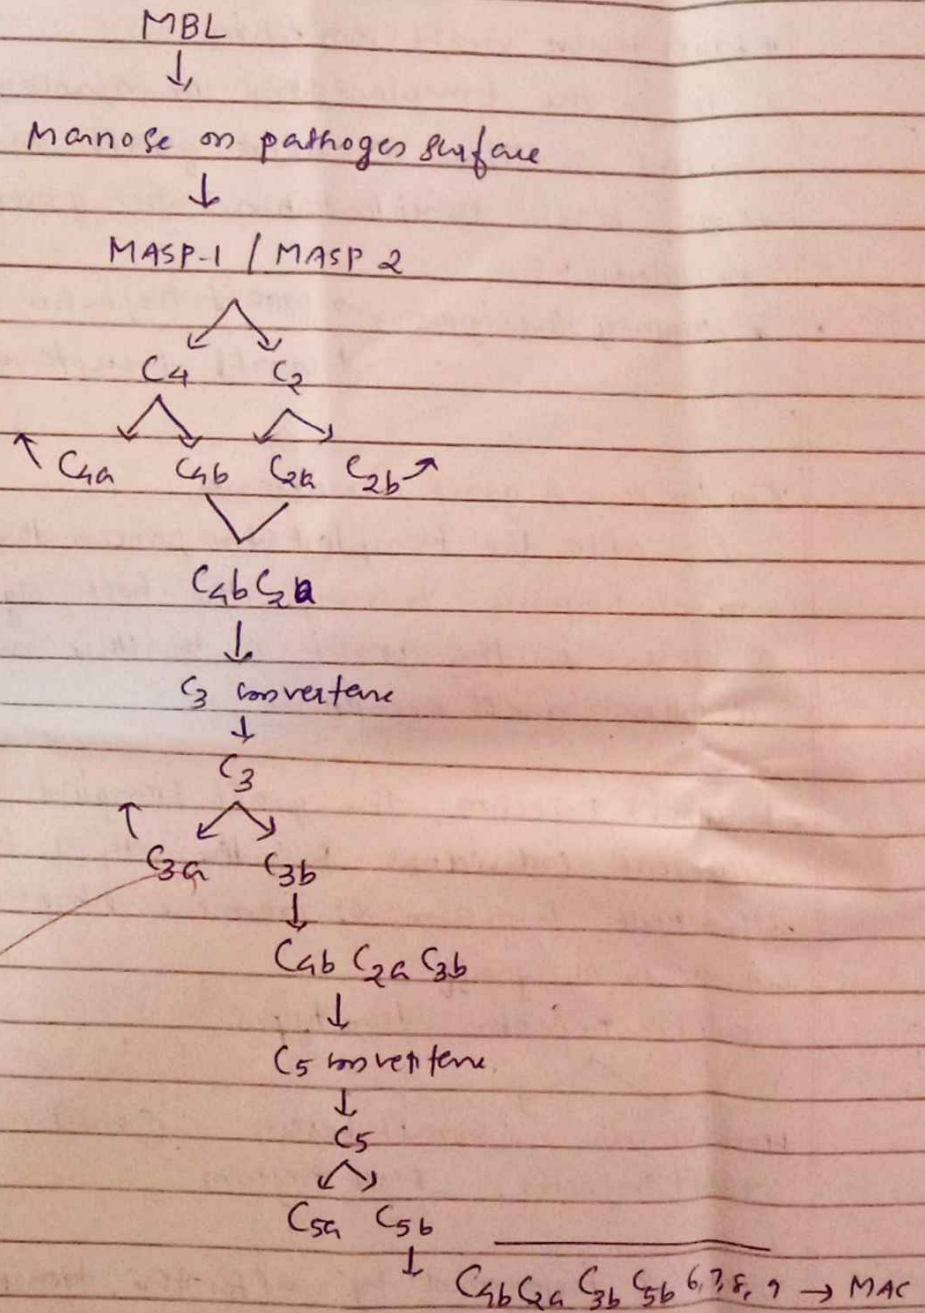 MBL
↓
Mannose on pathogen surface
↓
MASP-1 / MASP 2
C4 C2
↑ C4a C4b C2a C2b ↗
C4b C2a
↓
C3 convertase
↓
C3
↑
C3a C3b
↓
C4b C2a C3b
↓
C5 convertase
↓
C5
C5a C5b
↓
C4b C2a C3b C5b 6,7,8,9 → MAC